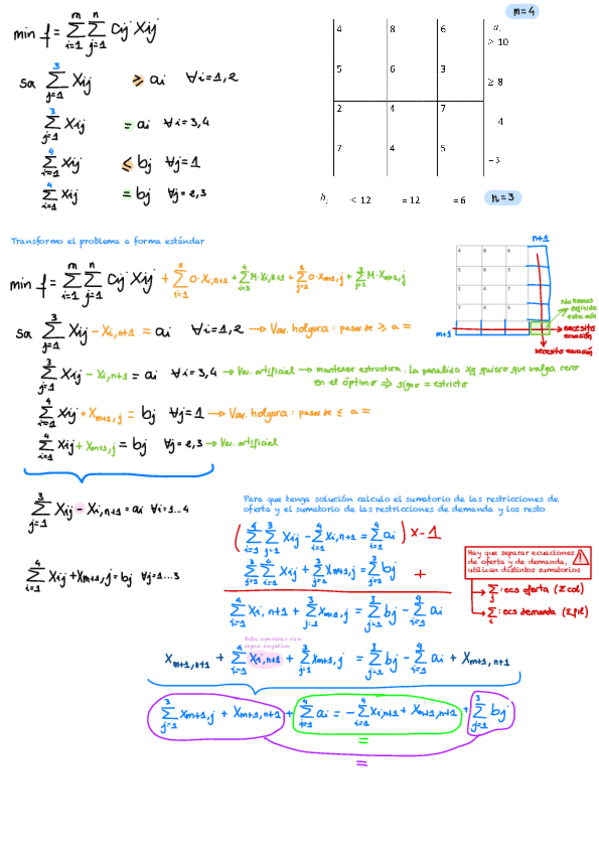 m=4
min f = Σ(i=1..m) Σ(j=1..n) Cij Xij
Sa Σ(j=1..3) Xij ≥ ai ∀i=1,2
Σ(j=1..3) Xij = ai ∀i=3,4
Σ(i=1..4) Xij ≤ bj ∀j=1
Σ(i=1..4) Xij = bj ∀j=2,3
4 8 6 > 10
5 6 3 ≥ 8
2 4 7 4
7 4 5 -3
< 12 = 12 = 6 n=3
Transformo el problema a forma estándar
min f = Σ(i=1..m) Σ(j=1..n) Cij Xij + Σ(i=1..2) 0·Xi,n+1 + Σ M·Xi,n+1 + Σ 0·Xm+1,j + Σ M·Xm+1,j
Sa Σ(j=1..3) Xij - Xi,n+1 = ai ∀i=1,2 → Var. holgura: pasar de ≥ a =
Σ(j=1..3) Xij - Xi,n+1 = ai ∀i=3,4 → Var. artificial → mantener estructura. La penalizo xq quiero que valga cero
en el óptimo ⇒ signo = estricto
Σ(i=1..4) Xij + Xm+1,j = bj ∀j=1 → Var. holgura: pasar de ≤ a =
Σ(i=1..4) Xij + Xm+1,j = bj ∀j=2,3 → Var. artificial
n+1
m+1
No hemos definido esta aún
necesito ecuación
necesito ecuación
Σ(j=1..3) Xij - Xi,n+1 = ai ∀i=1...4
Σ(i=1..4) Xij + Xm+1,j = bj ∀j=1...3
Para que tenga solución calculo el sumatorio de las restricciones de
oferta y el sumatorio de las restricciones de demanda y los resto
( Σ(i=1..4) Σ(j=1..3) Xij - Σ(i=1..4) Xi,n+1 = Σ(i=1..4) ai ) x -1
Σ Σ Xij + Σ(j=1..3) Xm+1,j = Σ(j=1..3) bj +
Σ(i=1..4) Xi,n+1 + Σ(j=1..3) Xm+1,j = Σ(j=1..3) bj - Σ(i=1..4) ai
Hay que separar ecuaciones
de oferta y de demanda,
utilizan distintos sumatorios
Σ : ecs oferta
Σ : ecs demanda
signo negativo
Xm+1,n+1 + Σ(i=1..4) Xi,n+1 + Σ(j=1..3) Xm+1,j = Σ(j=1..3) bj - Σ(i=1..4) ai + Xm+1,n+1
Σ(j=1..3) Xm+1,j + Xm+1,n+1 + Σ(i=1..4) ai = -Σ(i=1..4) Xi,n+1 + Xm+1,n+1 + Σ(j=1..3) bj
=
=